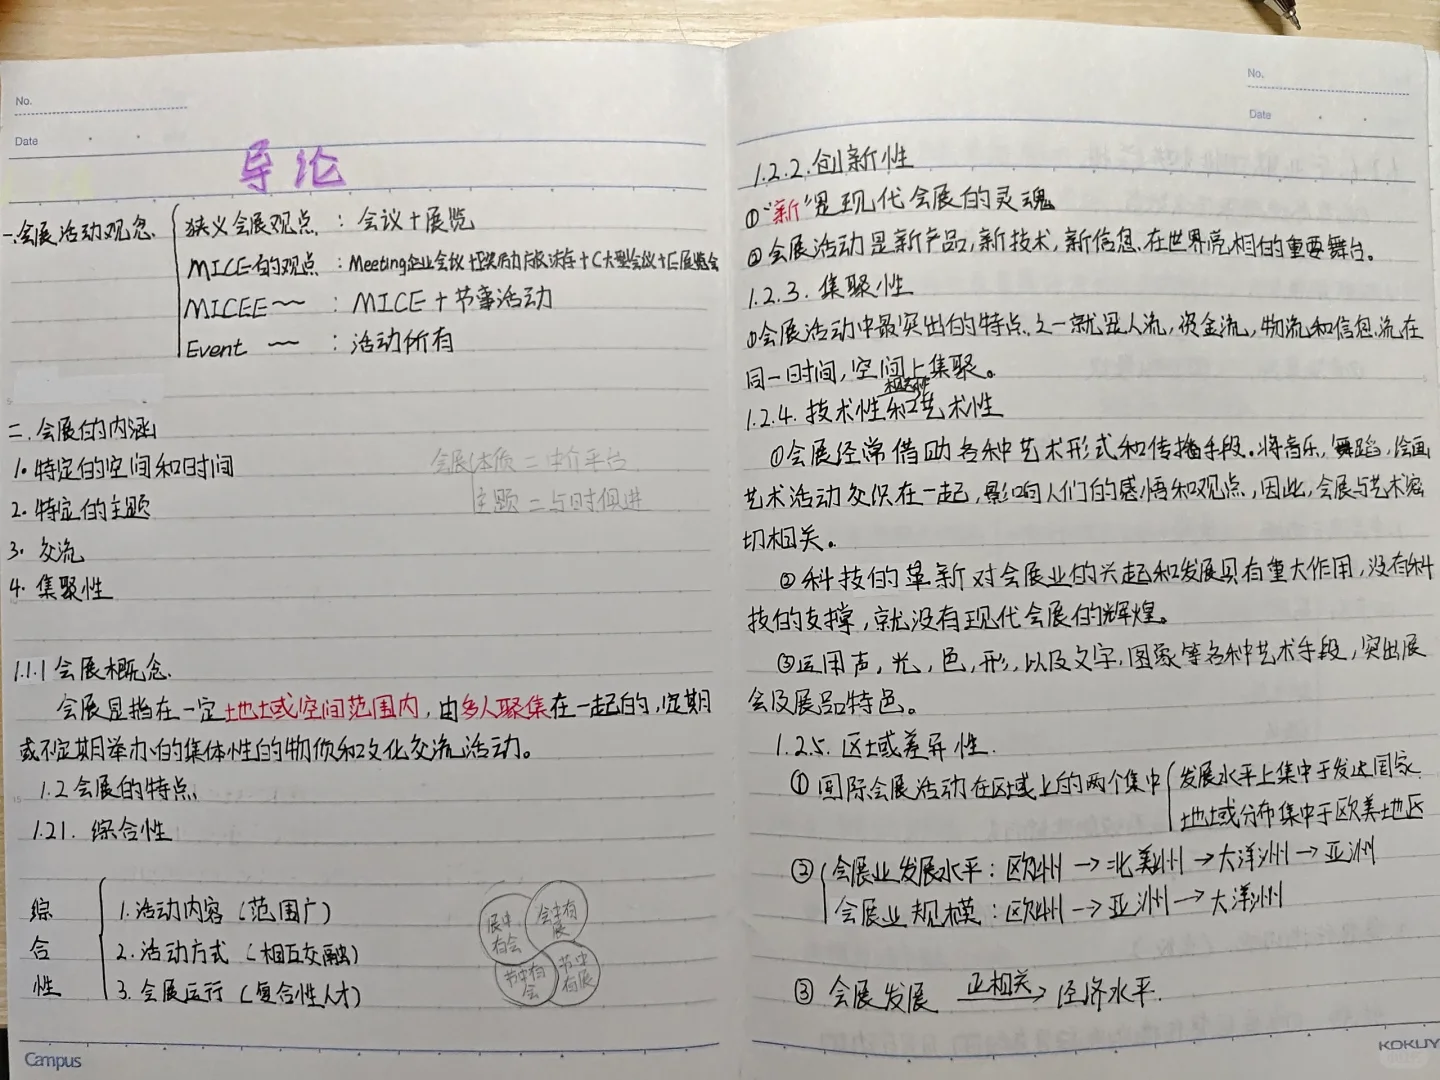 No.
Date
导论
一.会展活动观念
狭义会展观点：会议+展览
MICE的观点：Meeting企业会议+I奖励旅游+C大型会议+E展览会
MICEE~~：MICE+节事活动
Event ~~：活动所有
二.会展的内涵
1.特定的空间和时间
2.特定的主题
3.交流
4.集聚性
会展体质=中介平台
主题=与时俱进
1.1.1会展概念.
会展是指在一定地域或空间范围内，由多人聚集在一起的，定期
或不定期举办的集体性的物质和文化交流活动。
1.2会展的特点.
1.21.综合性
综合性
1.活动内容（范围广）
2.活动方式（相互交融）
3.会展运行（复合性人才）
展中有会
会中有展
节中有会
节中有展
Campus
No.
Date
1.2.2.创新性
①“新”是现代会展的灵魂
②会展活动是新产品，新技术，新信息.在世界亮相的重要舞台。
1.2.3.集聚性
①会展活动中最突出的特点.之一就是人流，资金流，物流和信息.流在
同一时间，空间上集聚。
1.2.4.技术性和艺术性
①会展经常借助各种艺术形式和传播手段。将音乐，舞蹈，绘画
艺术活动交织在一起，影响人们的感悟和观点，因此，会展与艺术密
切相关。
②科技的革新对会展业的兴起和发展具有重大作用，没有科
技的支撑，就没有现代会展的辉煌。
③运用声，光，色，形，以及文字，图象等各种艺术手段，突出展
会及展品特色。
1.2.5.区域差异性.
①国际会展活动在区域上的两个集中
发展水平上集中于发达国家.
地域分布集中于欧美地区
②会展业发展水平：欧州→北美州→大洋州→亚洲
会展业规模：欧州→亚洲→大洋州
③会展发展 正相关→ 经济水平.
KOKUY